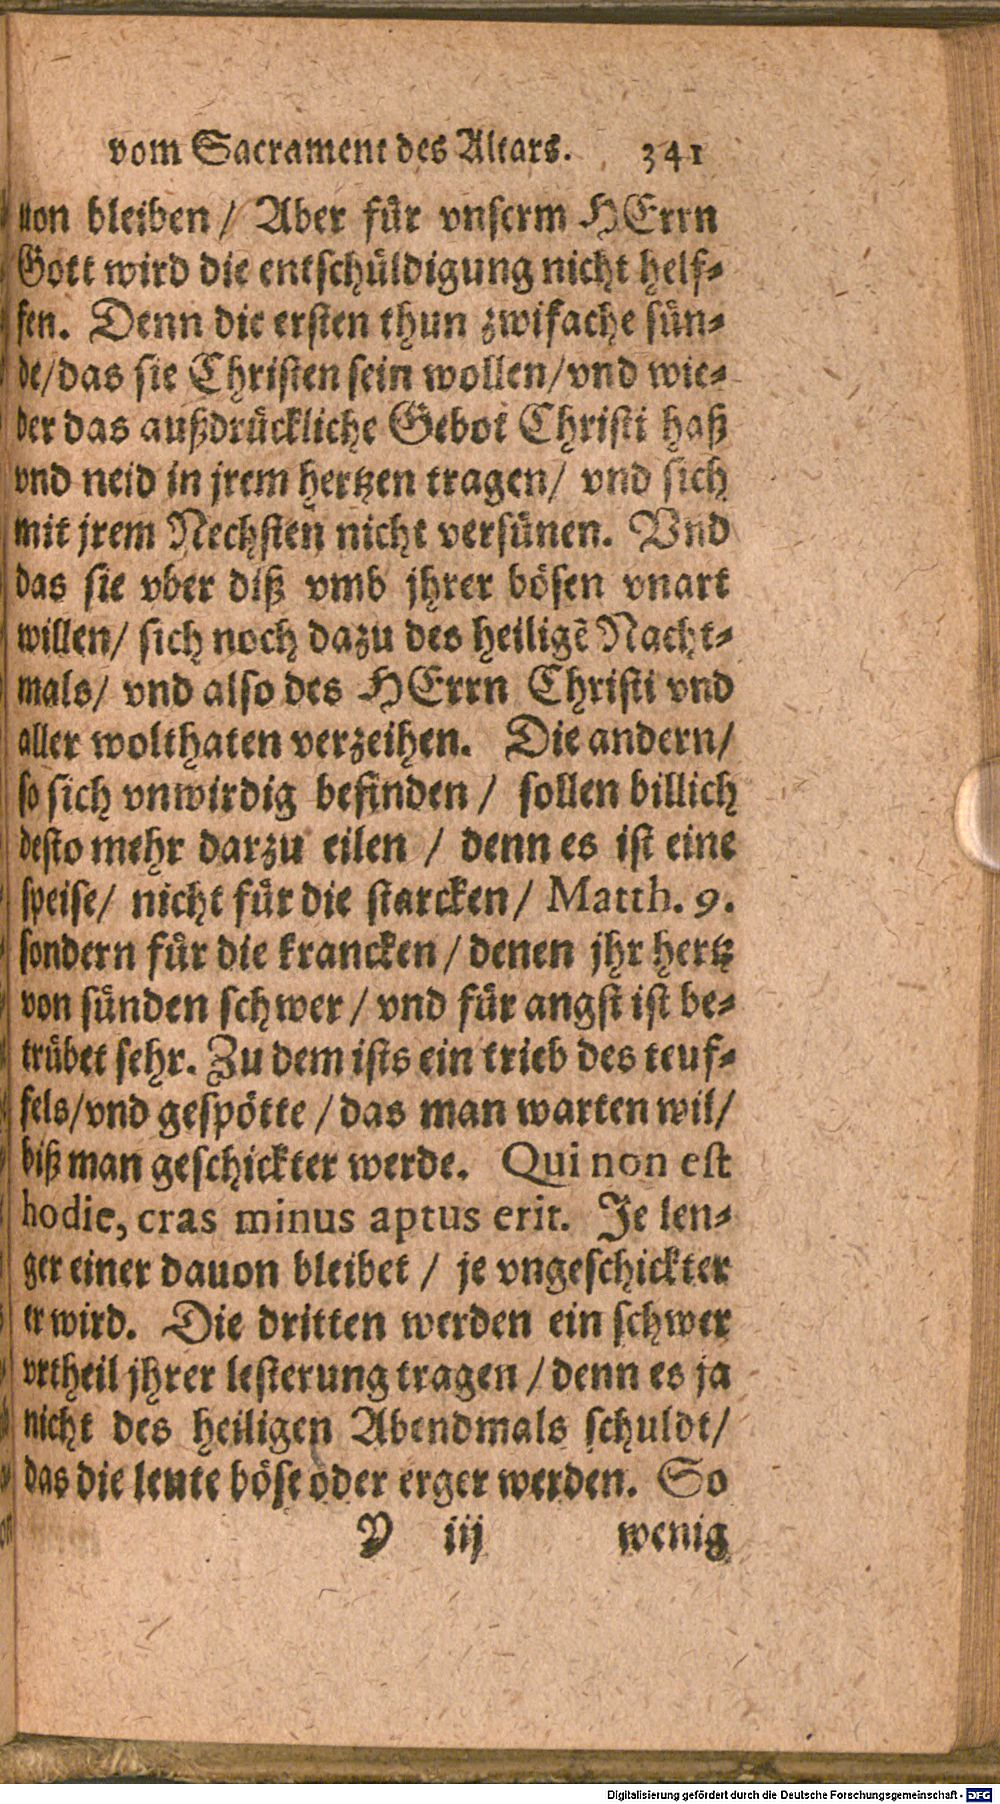 vom Sacrament des Altars. 341
uon bleiben / Aber für vnserm HErrn
Gott wird die entschüldigung nicht helf-
fen. Denn die ersten thun zwifache sün-
de/das sie Christen sein wollen/vnd wie-
der das außdrückliche Gebot Christi haß
vnd neid in jrem hertzen tragen/ vnd sich
mit jrem Nechsten nicht versünen. Vnd
das sie vber diß vmb jhrer bösen vnart
willen/ sich noch dazu des heiligẽ Nacht-
mals/ vnd also des HErrn Christi vnd
aller wolthaten verzeihen. Die andern/
so sich vnwirdig befinden / sollen billich
desto mehr darzu eilen / denn es ist eine
speise/ nicht für die starcken/ Matth. 9.
sondern für die krancken / denen jhr hertz
von sünden schwer / vnd für angst ist be-
trübet sehr. Zu dem ists ein trieb des teuf-
fels/vnd gespötte / das man warten wil/
biß man geschickter werde. Qui non est
hodie, cras minus aptus erit. Je len-
ger einer dauon bleibet / je vngeschickter
er wird. Die dritten werden ein schwer
vrtheil jhrer lesterung tragen / denn es ja
nicht des heiligen Abendmals schuldt/
das die leute böse oder erger werden. So
Y iij wenig
Digitalisierung gefördert durch die Deutsche Forschungsgemeinschaft - DFG